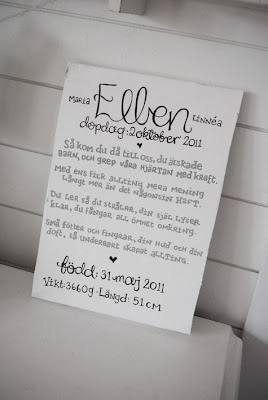 Maria Ellen Linnéa
dopdag: 2 oktober 2011
Så kom du då till oss, du älskade
barn, och grep våra hjärtan med kraft.
Med ens fick allting mera mening
långt mer än det någonsin haft.
Du ler så du strålar, din själ lyser
klar, du fångar all ömhet omkring.
Små fötter och fingrar, din hud och din
doft, så underbart skapat allting.
född: 31 maj 2011
Vikt: 3660g · Längd: 51 cm